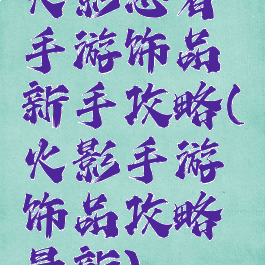 火影忍者
手游饰品
新手攻略(
火影手游
饰品攻略
最新)